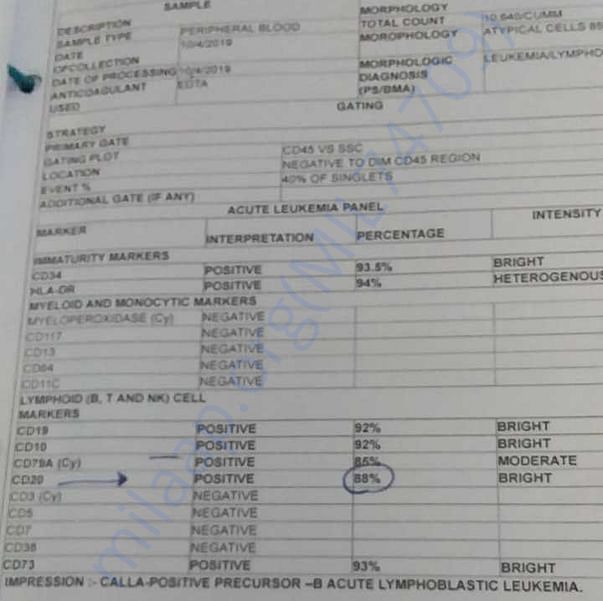 SAMPLE
DESCRIPTION
SAMPLE TYPE PERIPHERAL BLOOD
DATE 10/4/2019
OFCOLLECTION
DATE OF PROCESSING 10/4/2019
ANTICOAGULANT EDTA
USED
MORPHOLOGY
TOTAL COUNT 10,640/CUMM
MOROPHOLOGY ATYPICAL CELLS 85
MORPHOLOGIC LEUKEMIA/LYMPHO
DIAGNOSIS
(PS/BMA)
GATING
STRATEGY
PRIMARY GATE CD45 VS SSC
GATING PLOT NEGATIVE TO DIM CD45 REGION
LOCATION
EVENT % 40% OF SINGLETS
ADDITIONAL GATE (IF ANY)
ACUTE LEUKEMIA PANEL
MARKER INTERPRETATION PERCENTAGE INTENSITY
IMMATURITY MARKERS
CD34 POSITIVE 93.5% BRIGHT
HLA-DR POSITIVE 94% HETEROGENOUS
MYELOID AND MONOCYTIC MARKERS
MYELOPEROXIDASE (Cy) NEGATIVE
CD117 NEGATIVE
CD13 NEGATIVE
CD64 NEGATIVE
CD11C NEGATIVE
LYMPHOID (B, T AND NK) CELL
MARKERS
CD19 POSITIVE 92% BRIGHT
CD10 POSITIVE 92% BRIGHT
CD79A (Cy) POSITIVE 85% MODERATE
CD20 POSITIVE 88% BRIGHT
CD3 (Cy) NEGATIVE
CD5 NEGATIVE
CD7 NEGATIVE
CD38 NEGATIVE
CD73 POSITIVE 93% BRIGHT
IMPRESSION :- CALLA-POSITIVE PRECURSOR –B ACUTE LYMPHOBLASTIC LEUKEMIA.